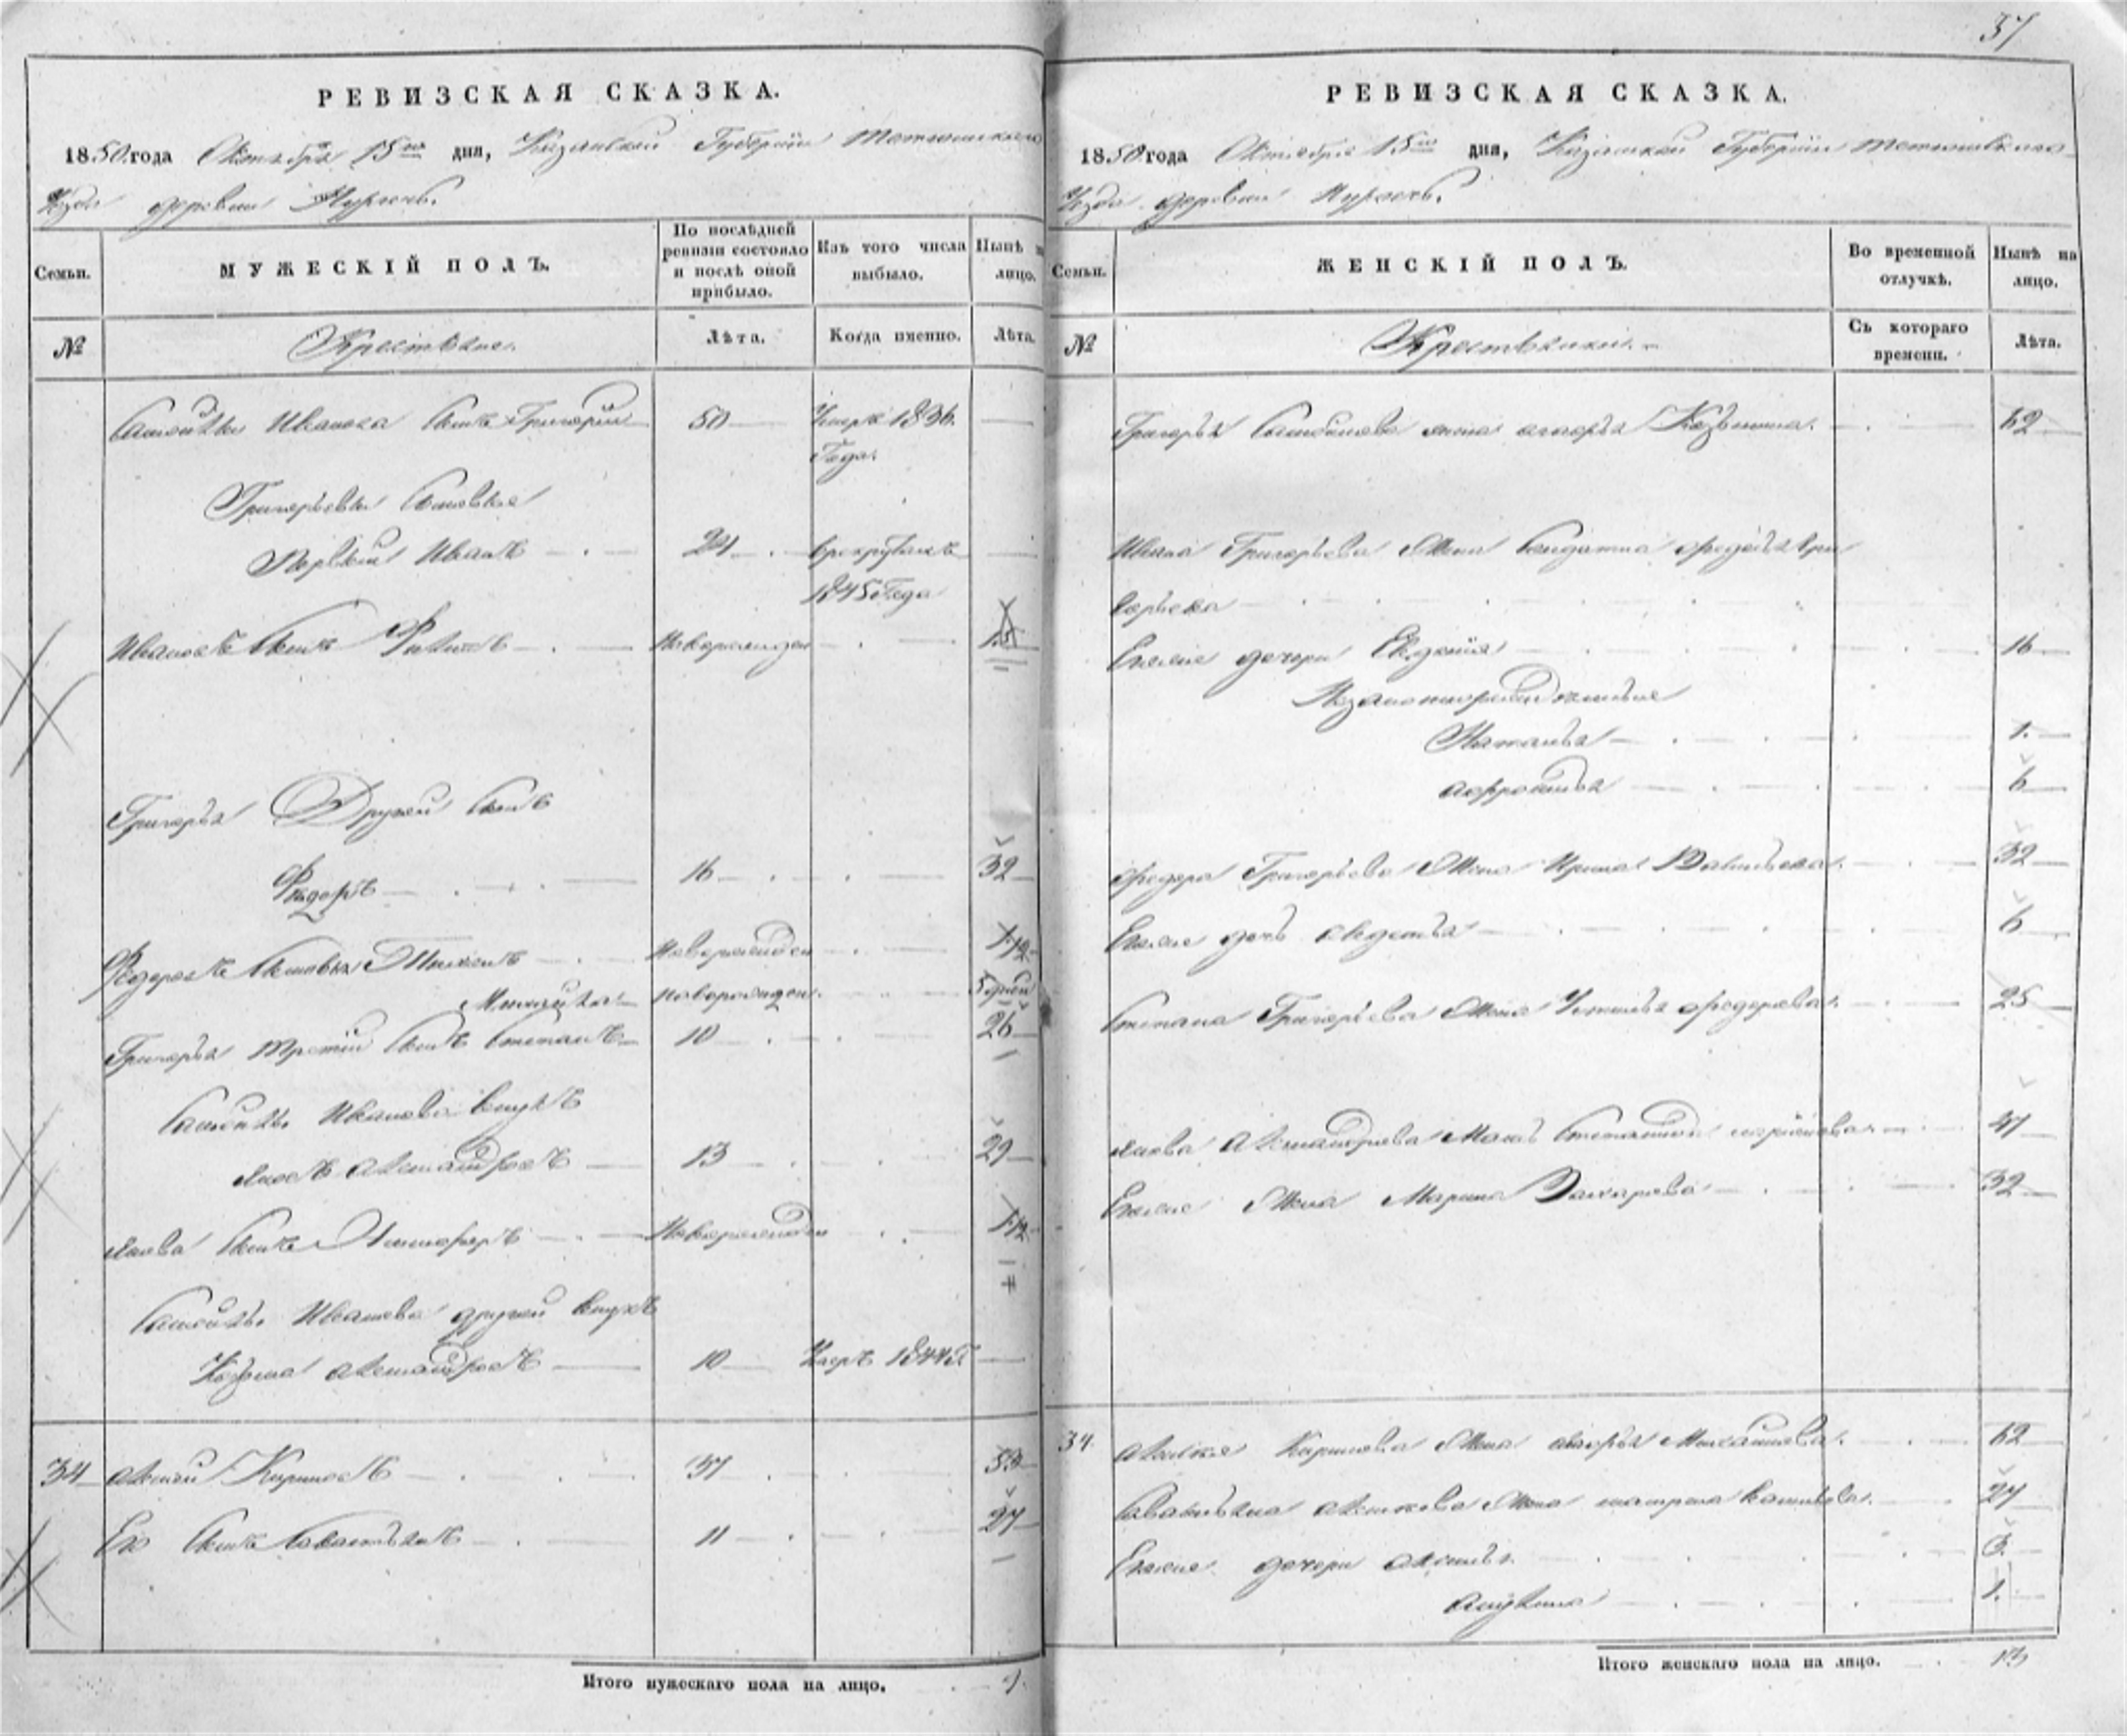 37
РЕВИЗСКАЯ СКАЗКА.
1850 года Октября 15го дня, Казанской Губернии Тетюшскаго
Уезда деревни
Семьи.
МУЖЕСКІЙ ПОЛЪ.
По послѣдней ревизіи состояло и послѣ оной прибыло.
Изъ того числа выбыло.
Нынѣ на лицо.
№
Крестьяне.
Лѣта.
Когда именно.
Лѣта.
Самойлы Иванова Сынъ Григорій 50 Умеръ 1836
Года.
Григорьевы Сыновья
Первый Иванъ 24 в рекрутахъ
1845 Года
Ивановъ Сынъ Филипъ Новорожден 15
Григорья Другой Сынъ
Федоръ 16 32
Федоровы Сыновья Тихонъ Новорожден 1/2
Михайла новорожден. 5 дней
Григорья Третій Сынъ Степанъ 10 26
Самойлы Иванова внукъ
Яковъ Александровъ 13 29
Якова Сынъ Никифоръ Новорожден 1/2
Самойлы Иванова другой внукъ
Козьма Александровъ 10 Умеръ 1844 Г
34 Кириловъ 37 53
Его Сынъ Савастьянъ 11 27
Итого мужескаго пола на лицо. 9.
РЕВИЗСКАЯ СКАЗКА.
1850 года Октября 15го дня, Казанской Губернии Тетюшскаго
Уезда деревни
Семьи.
ЖЕНСКІЙ ПОЛЪ.
Во временной отлучкѣ.
Нынѣ на лицо.
№
Крестьянки.
Съ котораго времени.
Лѣта.
Григорья Самойлова жена Козьмина. 62
Ивана Григорьева Жена Солдатка Федосья Гри
горьева
Ево дочери Евдокія 16
Незаконнорожденные
Наталья 1.
Афросинья 6
Федора Григорьева Жена Ирина Васильева. 32
Ево дочь Авдотья 6
Степана Григорьева Жена Устинья Федорова. 25
Якова Александрова Мать 47
Ево Жена Марина Захарова 32
34. Кирилова Жена Михайлова. 52
Савастьяна Жена 27
Ево дочери 3.
Акулина 1.
Итого женскаго пола на лицо. 13